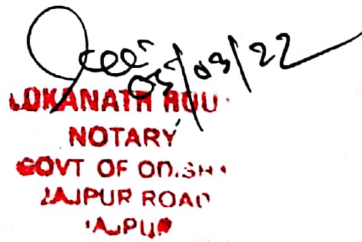 05/03/22
LOKANATH ROU
NOTARY
GOVT OF ODISHA
JAJPUR ROAD
JAJPUR